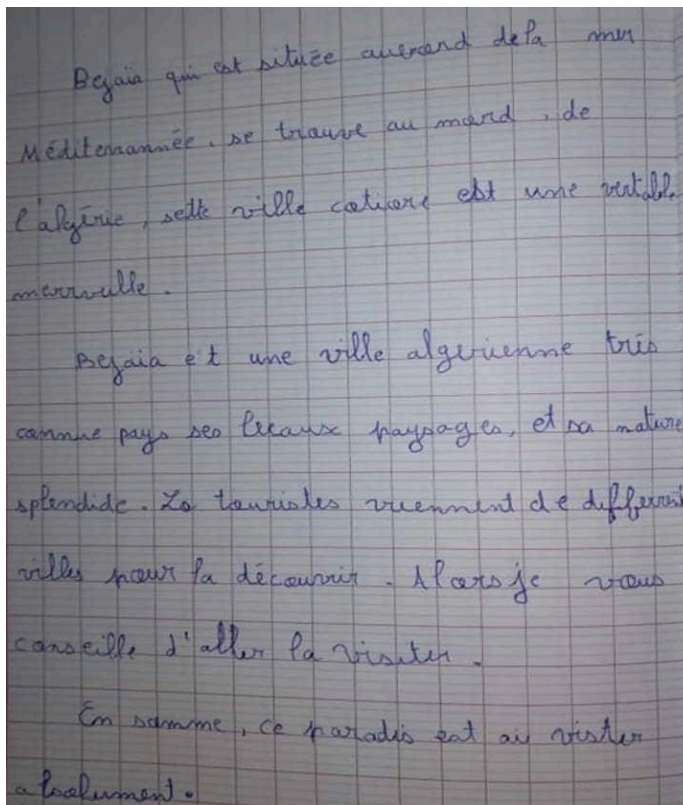 Bejaia qui est située au nord de la mer
Méditerrannée. se trouve au mord, de
l'algérie, sette ville cotiere est une veritable
merveille.
Bejaia et une ville algerienne tris
connue pays ses beaux paysages, et sa nature
splendide. Lo touristes viennent de different
villes pour la découvrir. Alors je vous
conseille d'aller la visiter.
En somme, ce paradis est ai vister
absolument.